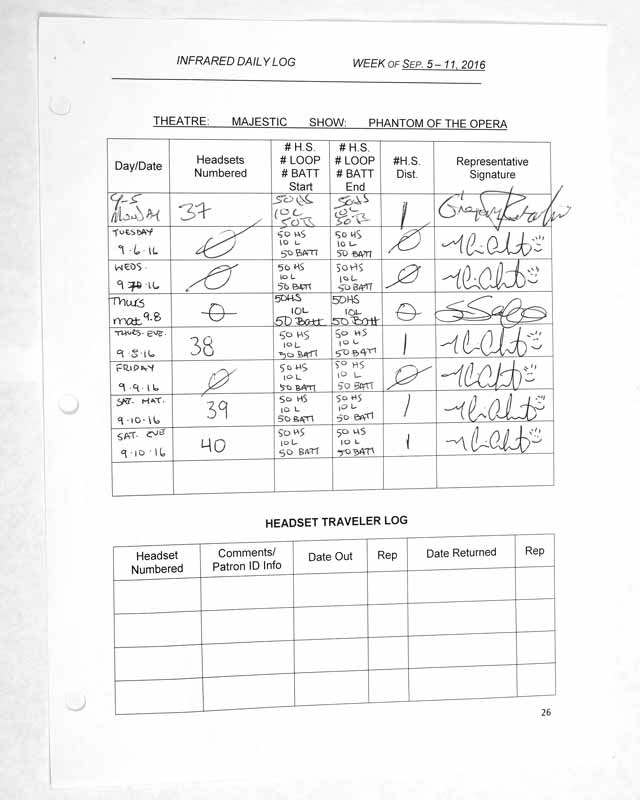 INFRARED DAILY LOG WEEK OF SEP. 5 – 11, 2016
THEATRE: MAJESTIC SHOW: PHANTOM OF THE OPERA
Day/Date Headsets Numbered # H.S. # LOOP # BATT Start # H.S. # LOOP # BATT End #H.S. Dist. Representative Signature
9-5 Monday 37 50 HS 10 L 50 B 50 HS 10 L 50 B 1
TUESDAY 9·6·16 Ø 50 HS 10 L 50 BATT 50 HS 10 L 50 BATT Ø
WEDS. 9 7 16 Ø 50 HS 10 L 50 BATT 50 HS 10 L 50 BATT Ø
Thurs mat 9.8 Ø 50HS 10L 50 Batt 50HS 10L 50 Batt Ø
THURS. EVE. 9·8·16 38 50 HS 10 L 50 BATT 50 HS 10 L 50 BATT 1
FRIDAY 9·9·16 Ø 50 HS 10 L 50 BATT 50 HS 10 L 50 BATT Ø
SAT. MAT. 9·10·16 39 50 HS 10 L 50 BATT 50 HS 10 L 50 BATT 1
SAT. EVE 9·10·16 40 50 HS 10 L 50 BATT 50 HS 10 L 50 BATT 1
HEADSET TRAVELER LOG
Headset Numbered Comments/ Patron ID Info Date Out Rep Date Returned Rep
26